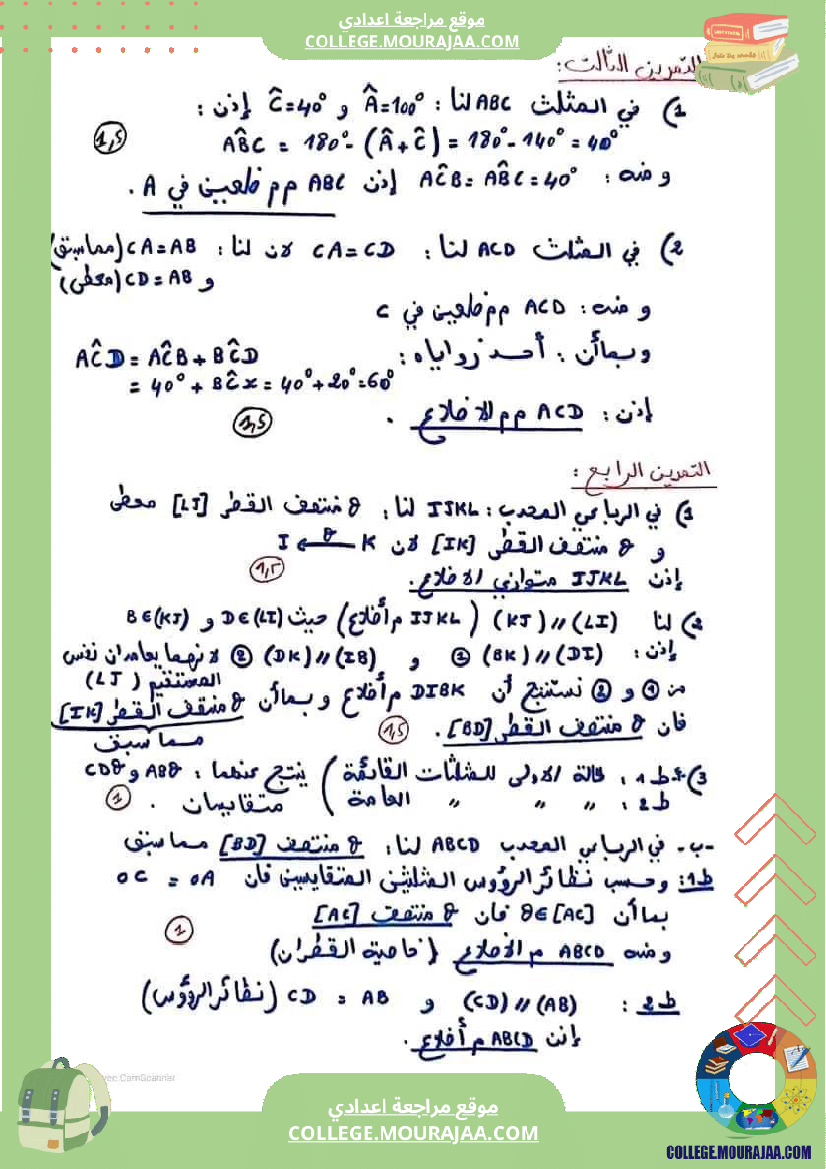 موقع مراجعة اعدادي
COLLEGE.MOURAJAA.COM
التمرين الثالث:
1) في المثلث ABC لنا: Â=100° و Ĉ=40° إذن:
AB̂C = 180° - (Â+Ĉ) = 180° - 140° = 40°
1,5
ومنه: AĈB = AB̂C = 40° إذن ABC مم ضلعين في A.
2) في المثلث ACD لنا: CA = CD لان لنا: CA = AB (مما سبق)
و CD = AB (معطى)
ومنه: ACD مم ضلعين في C
وبما أن: أحد زواياه: AĈD = AĈB + BĈD
= 40° + BĈx = 40° + 20° = 60°
إذن: ACD مم الاضلاع.
1,5
التمرين الرابع:
1) في الرباعي المحدب: IJKL لنا: O منتصف القطر [LJ] معطى
و O منتصف القطر [IK] لان I K
إذن IJKL متوازي الاضلاع.
1,5
2) لنا (KJ) // (LI) (IJKL م أضلاع) حيث D∈(LI) و B∈(KJ)
إذن: (BK) // (DI) ① و (DK) // (IB) ② لانهما يعامدان نفس
المستقيم (LJ)
من ① و ② نستنتج أن DIBK م أضلاع وبما أن O منتصف القطر [IK]
مما سبق
فان O منتصف القطر [BD].
1,5
3) أ- ط1: حالة الاولى للمثلثات القائمة ) ينتج عنهما: ABO و CDO
ط2: " " " العامة متقايسان.
1
-ب- في الرباعي المحدب ABCD لنا: O منتصف [BD] مما سبق
ط1: وحسب نظائر الرؤوس المثلثين المتقايسين فان OC = OA
بما أن O∈[AC] فان O منتصف [AC]
1
ومنه ABCD م الأضلاع (خاصية القطران)
ط2: (CD) // (AB) و CD = AB (نظائر الرؤوس)
إذن ABCD م أضلاع.
CamScanner
موقع مراجعة اعدادي
COLLEGE.MOURAJAA.COM
COLLEGE.MOURAJAA.COM